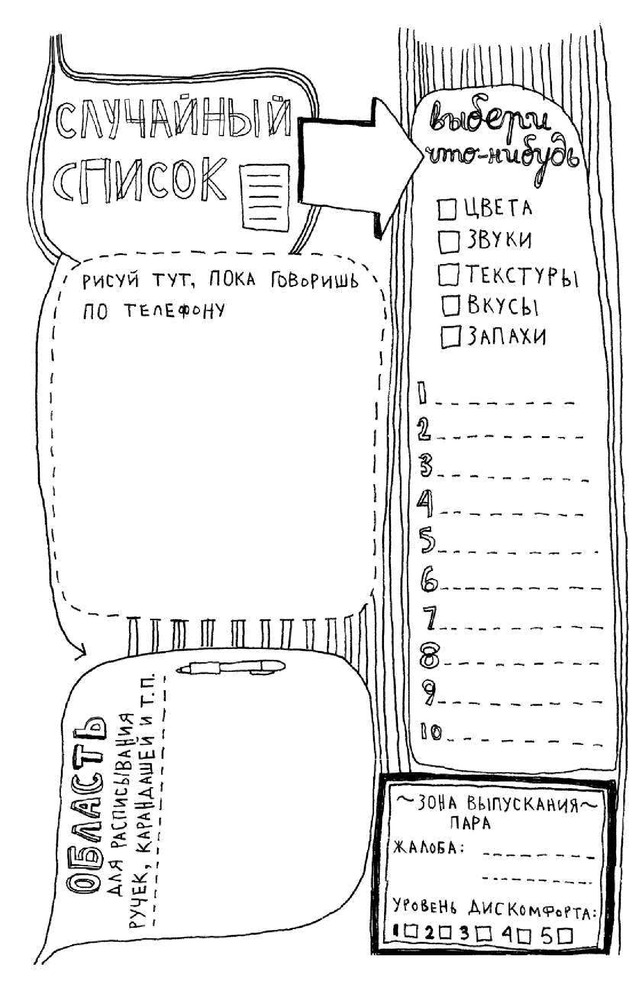 СЛУЧАЙНЫЙ
СПИСОК
выбери
что-нибудь
ЦВЕТА
ЗВУКИ
ТЕКСТУРЫ
ВКУСЫ
ЗАПАХИ
1
2
3
4
5
6
7
8
9
10
РИСУЙ ТУТ, ПОКА ГОВОРИШЬ
ПО ТЕЛЕФОНУ
ОБЛАСТЬ
ДЛЯ РАСПИСЫВАНИЯ
РУЧЕК, КАРАНДАШЕЙ И Т.П.
~ЗОНА ВЫПУСКАНИЯ~
ПАРА
ЖАЛОБА:
УРОВЕНЬ ДИСКОМФОРТА:
1 2 3 4 5